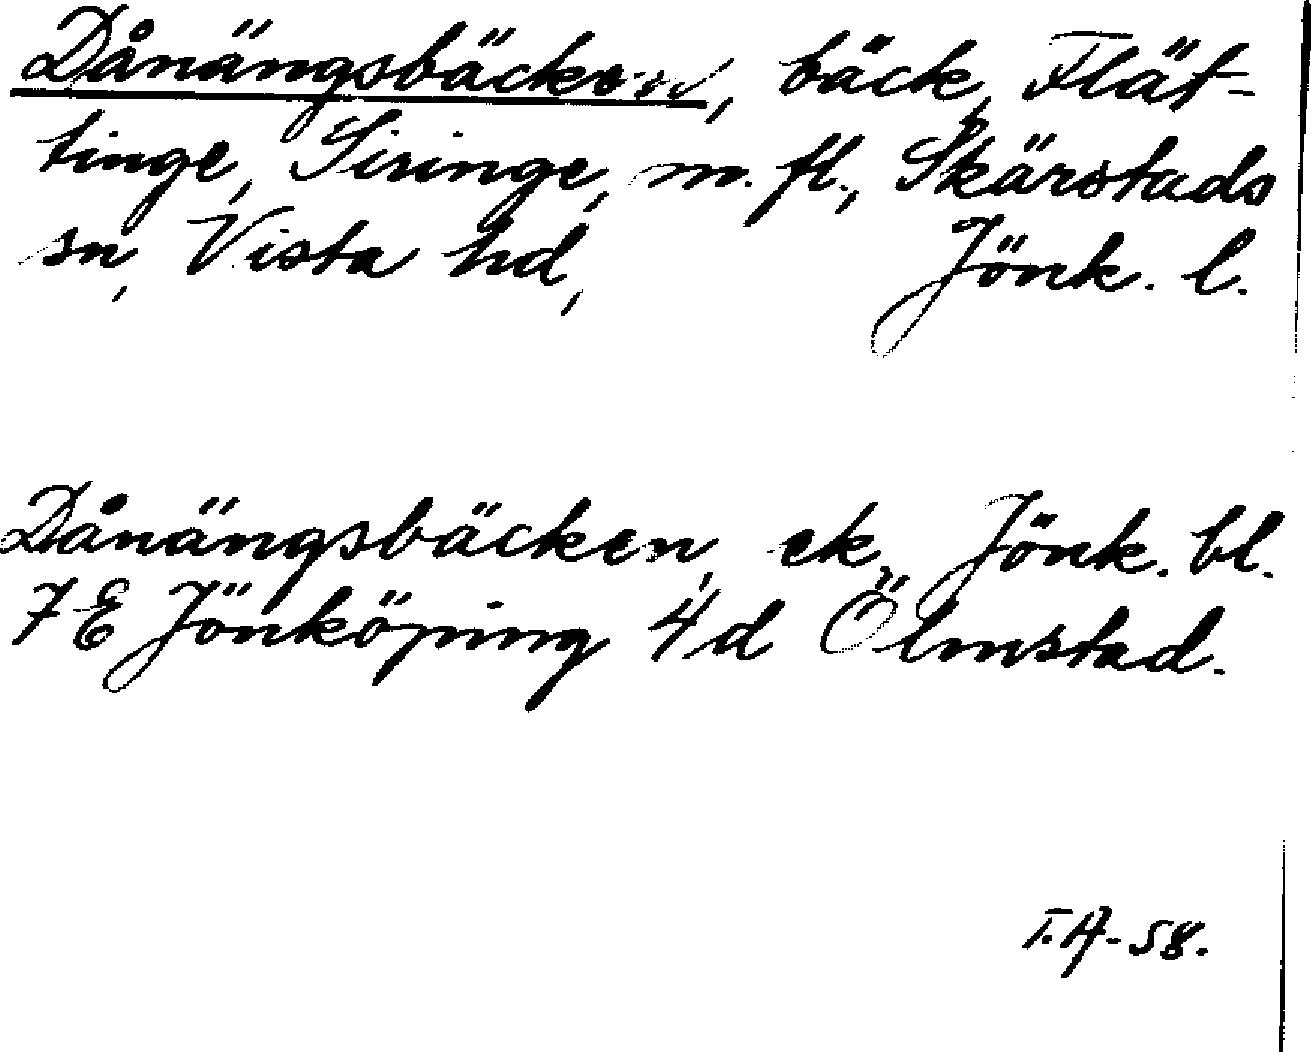 Dånängsbäcken, bäck, Flät-
tinge, Siringe, m. fl., Skärstads
sn, Vista hd, Jönk. l.
Dånängsbäcken, ek. Jönk. bl.
7 E Jönköping 4 d Ölmstad.
T.A-58.